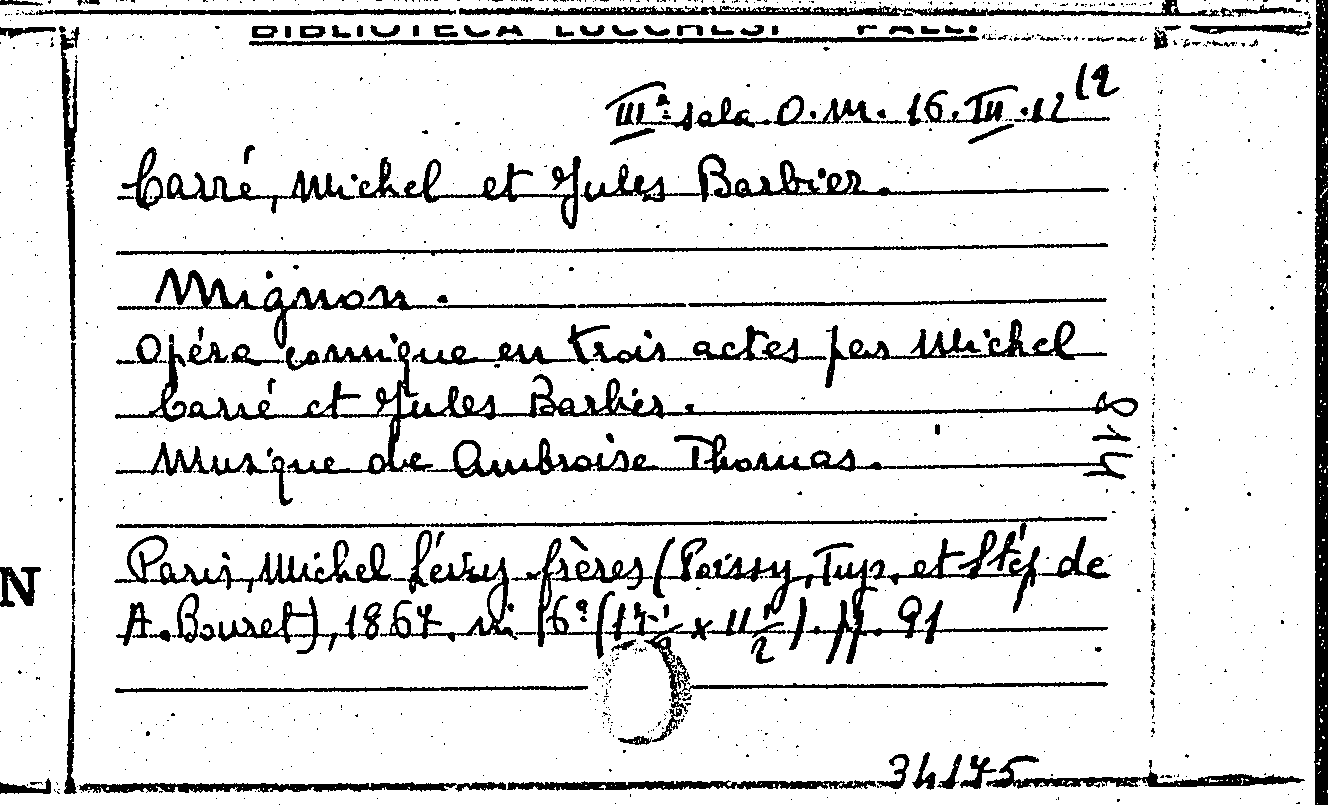 BIBLIOTECA LUCCHESI - PALLI
IIIª sala O. M. 16. III. 12 (2
Carré, Michel et Jules Barbier.
Mignon.
Opéra comique en trois actes par Michel
Carré et Jules Barbier.
Musique de Ambroise Thomas.
814
Paris, Michel Lévy frères (Poissy, Typ. et Stép de
N
A. Bouret), 1867. in 16º (17 1/2 x 11 1/2). pp. 91
34175